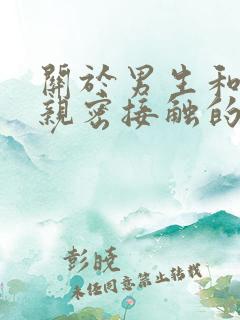 關於男生和
親密接触的
彭晓
未经同意禁止转载